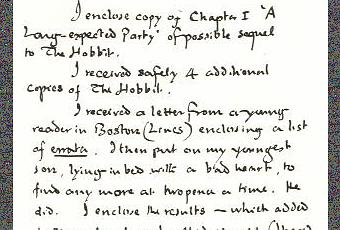 I enclose copy of Chapter I 'A
Long-expected Party' of possible sequel
to The Hobbit.
I received safely 4 additional
copies of The Hobbit.
I received a letter from a young
reader in Boston (Lincs) enclosing a list
of errata. I then put on my youngest
son, lying in bed with a bad heart, to
find any more at twopence a time. He
did. I enclose the results – which added